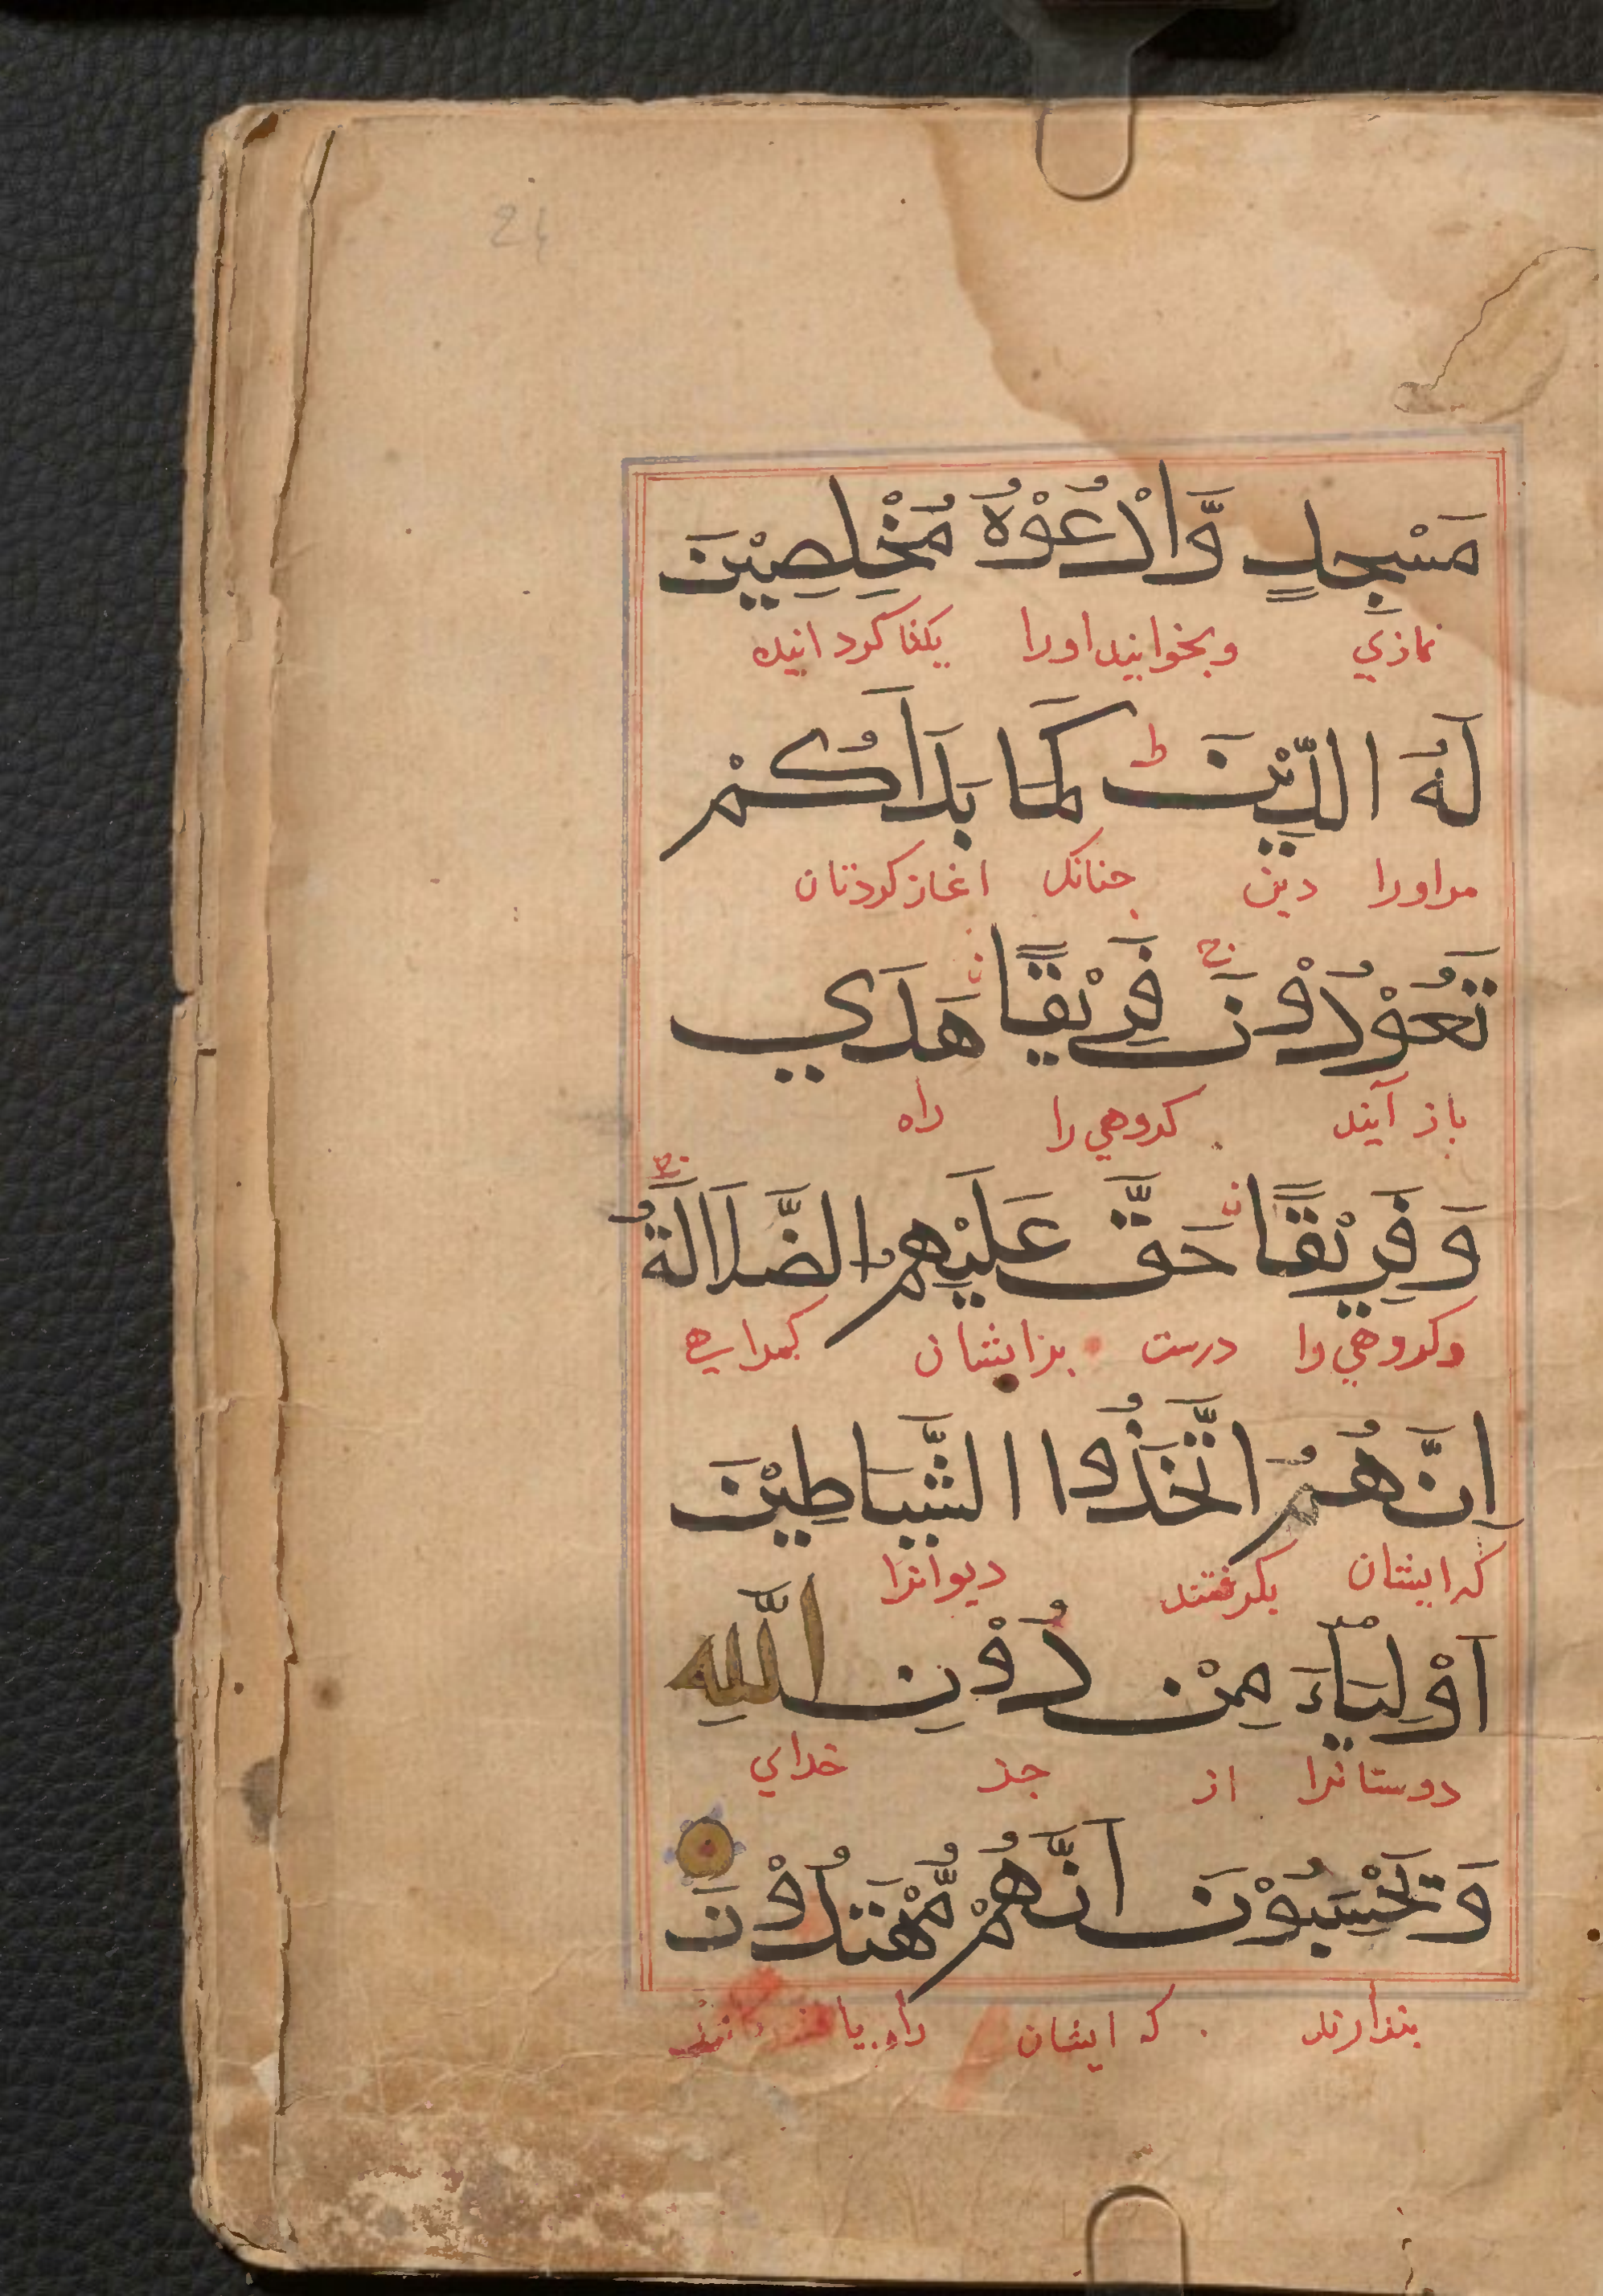 24
مَسْجِدٍ وَّادْعُوْهُ مُخْلِصِيْنَ
نمازي وبخوانيد اورا يكتا كردانيده
لَهُ الدِّيْنَ ط كَمَا بَدَاَكُمْ
مراورا دين جنانك اغاز كردتان
تَعُوْدُوْنَ ج فَرِيْقًا هَدَي
باز آيند كروهي را راه
وَفَرِيْقًا حَقَّ عَلَيْهِمُ الضَّلَالَةُ ج
وكروهي را درست برايشان كمراهي
اِنَّهُمُ اتَّخَذُوا الشَّيَاطِيْنَ
كه ايشان بكرفتند ديوانرا
اَوْلِيَاءَ مِنْ دُوْنِ اللّٰهِ
دوستانرا از جز خداي
وَيَحْسَبُوْنَ اَنَّهُمْ مُّهْتَدُوْنَ
بندارند كه ايشان راه